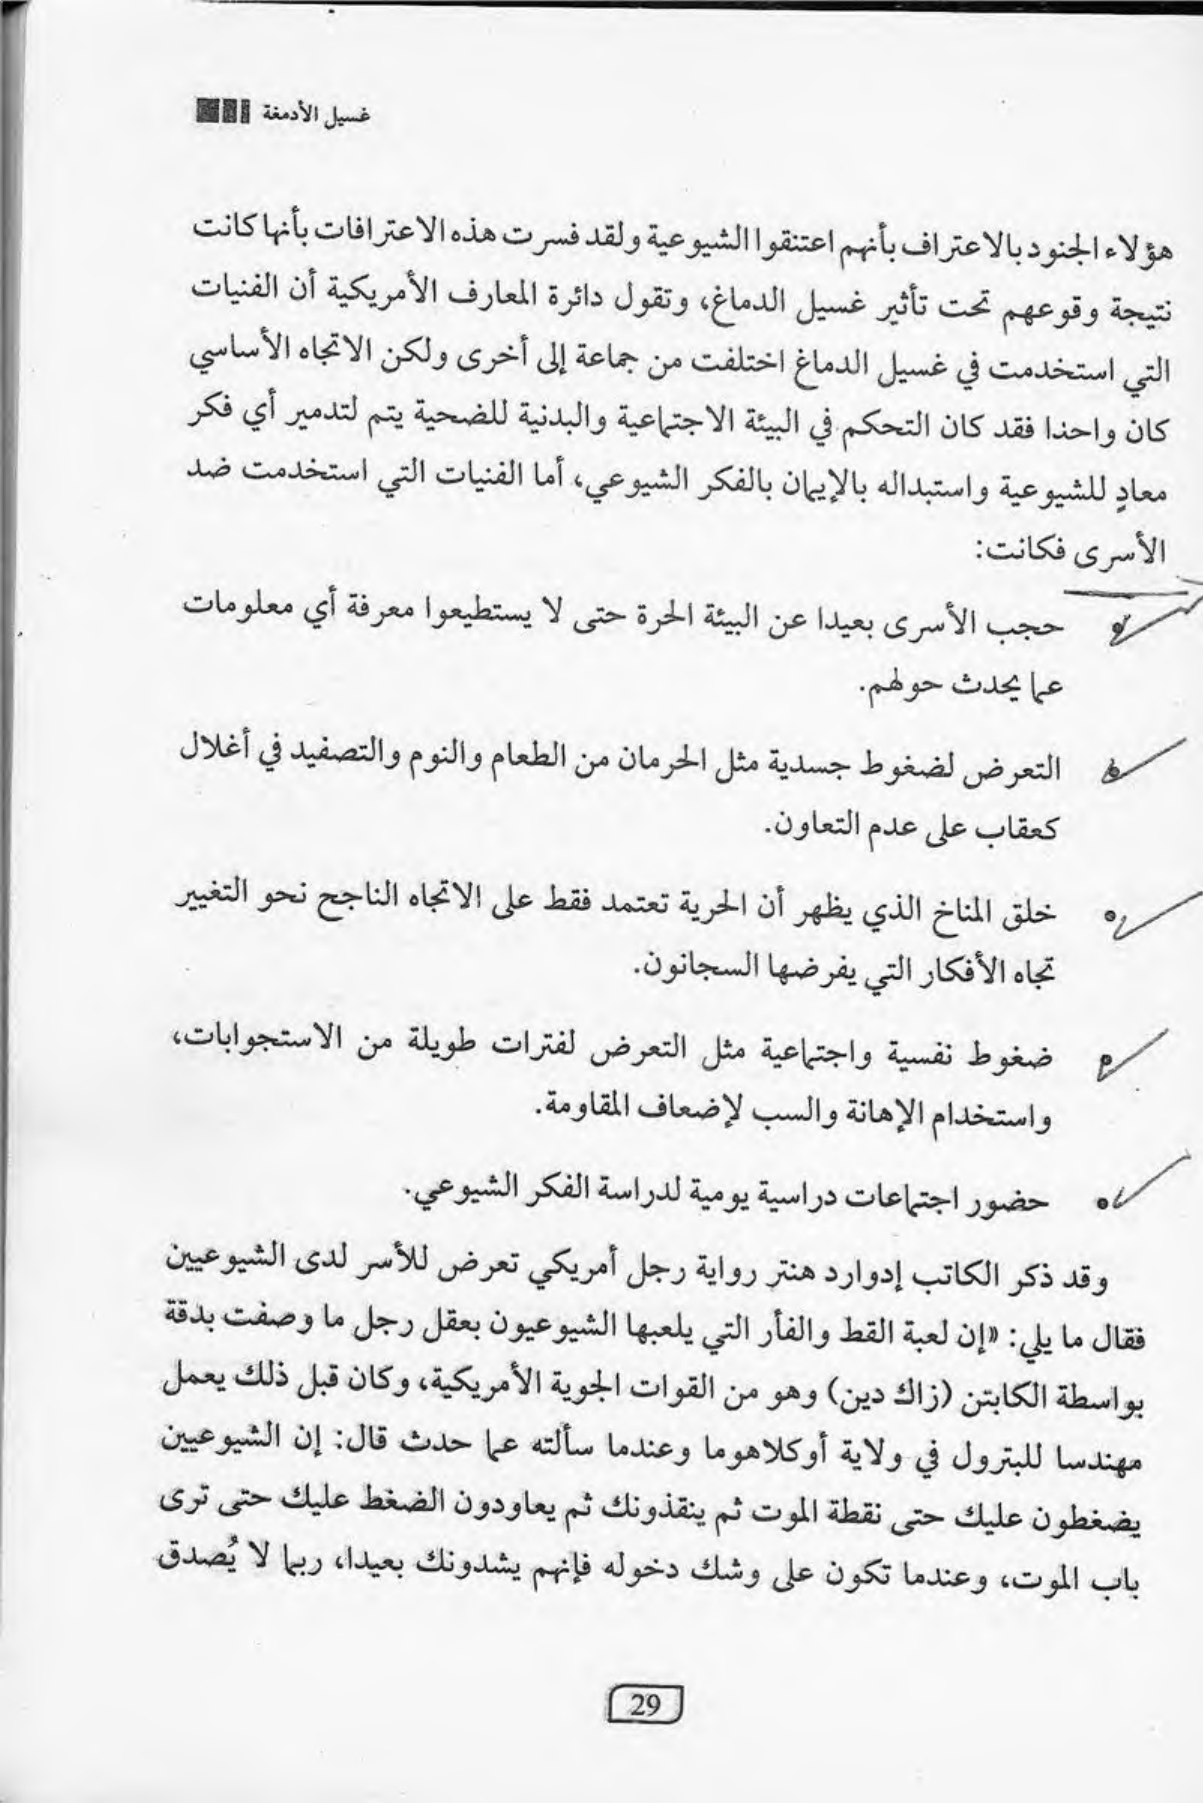 غسيل الأدمغة
هؤلاء الجنود بالاعتراف بأنهم اعتنقوا الشيوعية ولقد فسرت هذه الاعترافات بأنها كانت
نتيجة وقوعهم تحت تأثير غسيل الدماغ، وتقول دائرة المعارف الأمريكية أن الفنيات
التي استخدمت في غسيل الدماغ اختلفت من جماعة إلى أخرى ولكن الاتجاه الأساسي
كان واحدا فقد كان التحكم في البيئة الاجتماعية والبدنية للضحية يتم لتدمير أي فكر
معادٍ للشيوعية واستبداله بالإيمان بالفكر الشيوعي، أما الفنيات التي استخدمت ضد
الأسرى فكانت:
• حجب الأسرى بعيدا عن البيئة الحرة حتى لا يستطيعوا معرفة أي معلومات
عما يحدث حولهم.
• التعرض لضغوط جسدية مثل الحرمان من الطعام والنوم والتصفيد في أغلال
كعقاب على عدم التعاون.
• خلق المناخ الذي يظهر أن الحرية تعتمد فقط على الاتجاه الناجح نحو التغيير
تجاه الأفكار التي يفرضها السجانون.
• ضغوط نفسية واجتماعية مثل التعرض لفترات طويلة من الاستجوابات،
واستخدام الإهانة والسب لإضعاف المقاومة.
• حضور اجتماعات دراسية يومية لدراسة الفكر الشيوعي.
وقد ذكر الكاتب إدوارد هنتر رواية رجل أمريكي تعرض للأسر لدى الشيوعيين
فقال ما يلي: «إن لعبة القط والفأر التي يلعبها الشيوعيون بعقل رجل ما وصفت بدقة
بواسطة الكابتن (زاك دين) وهو من القوات الجوية الأمريكية، وكان قبل ذلك يعمل
مهندسا للبترول في ولاية أوكلاهوما وعندما سألته عما حدث قال: إن الشيوعيين
يضغطون عليك حتى نقطة الموت ثم ينقذونك ثم يعاودون الضغط عليك حتى ترى
باب الموت، وعندما تكون على وشك دخوله فإنهم يشدونك بعيدا، ربما لا يُصدق
29